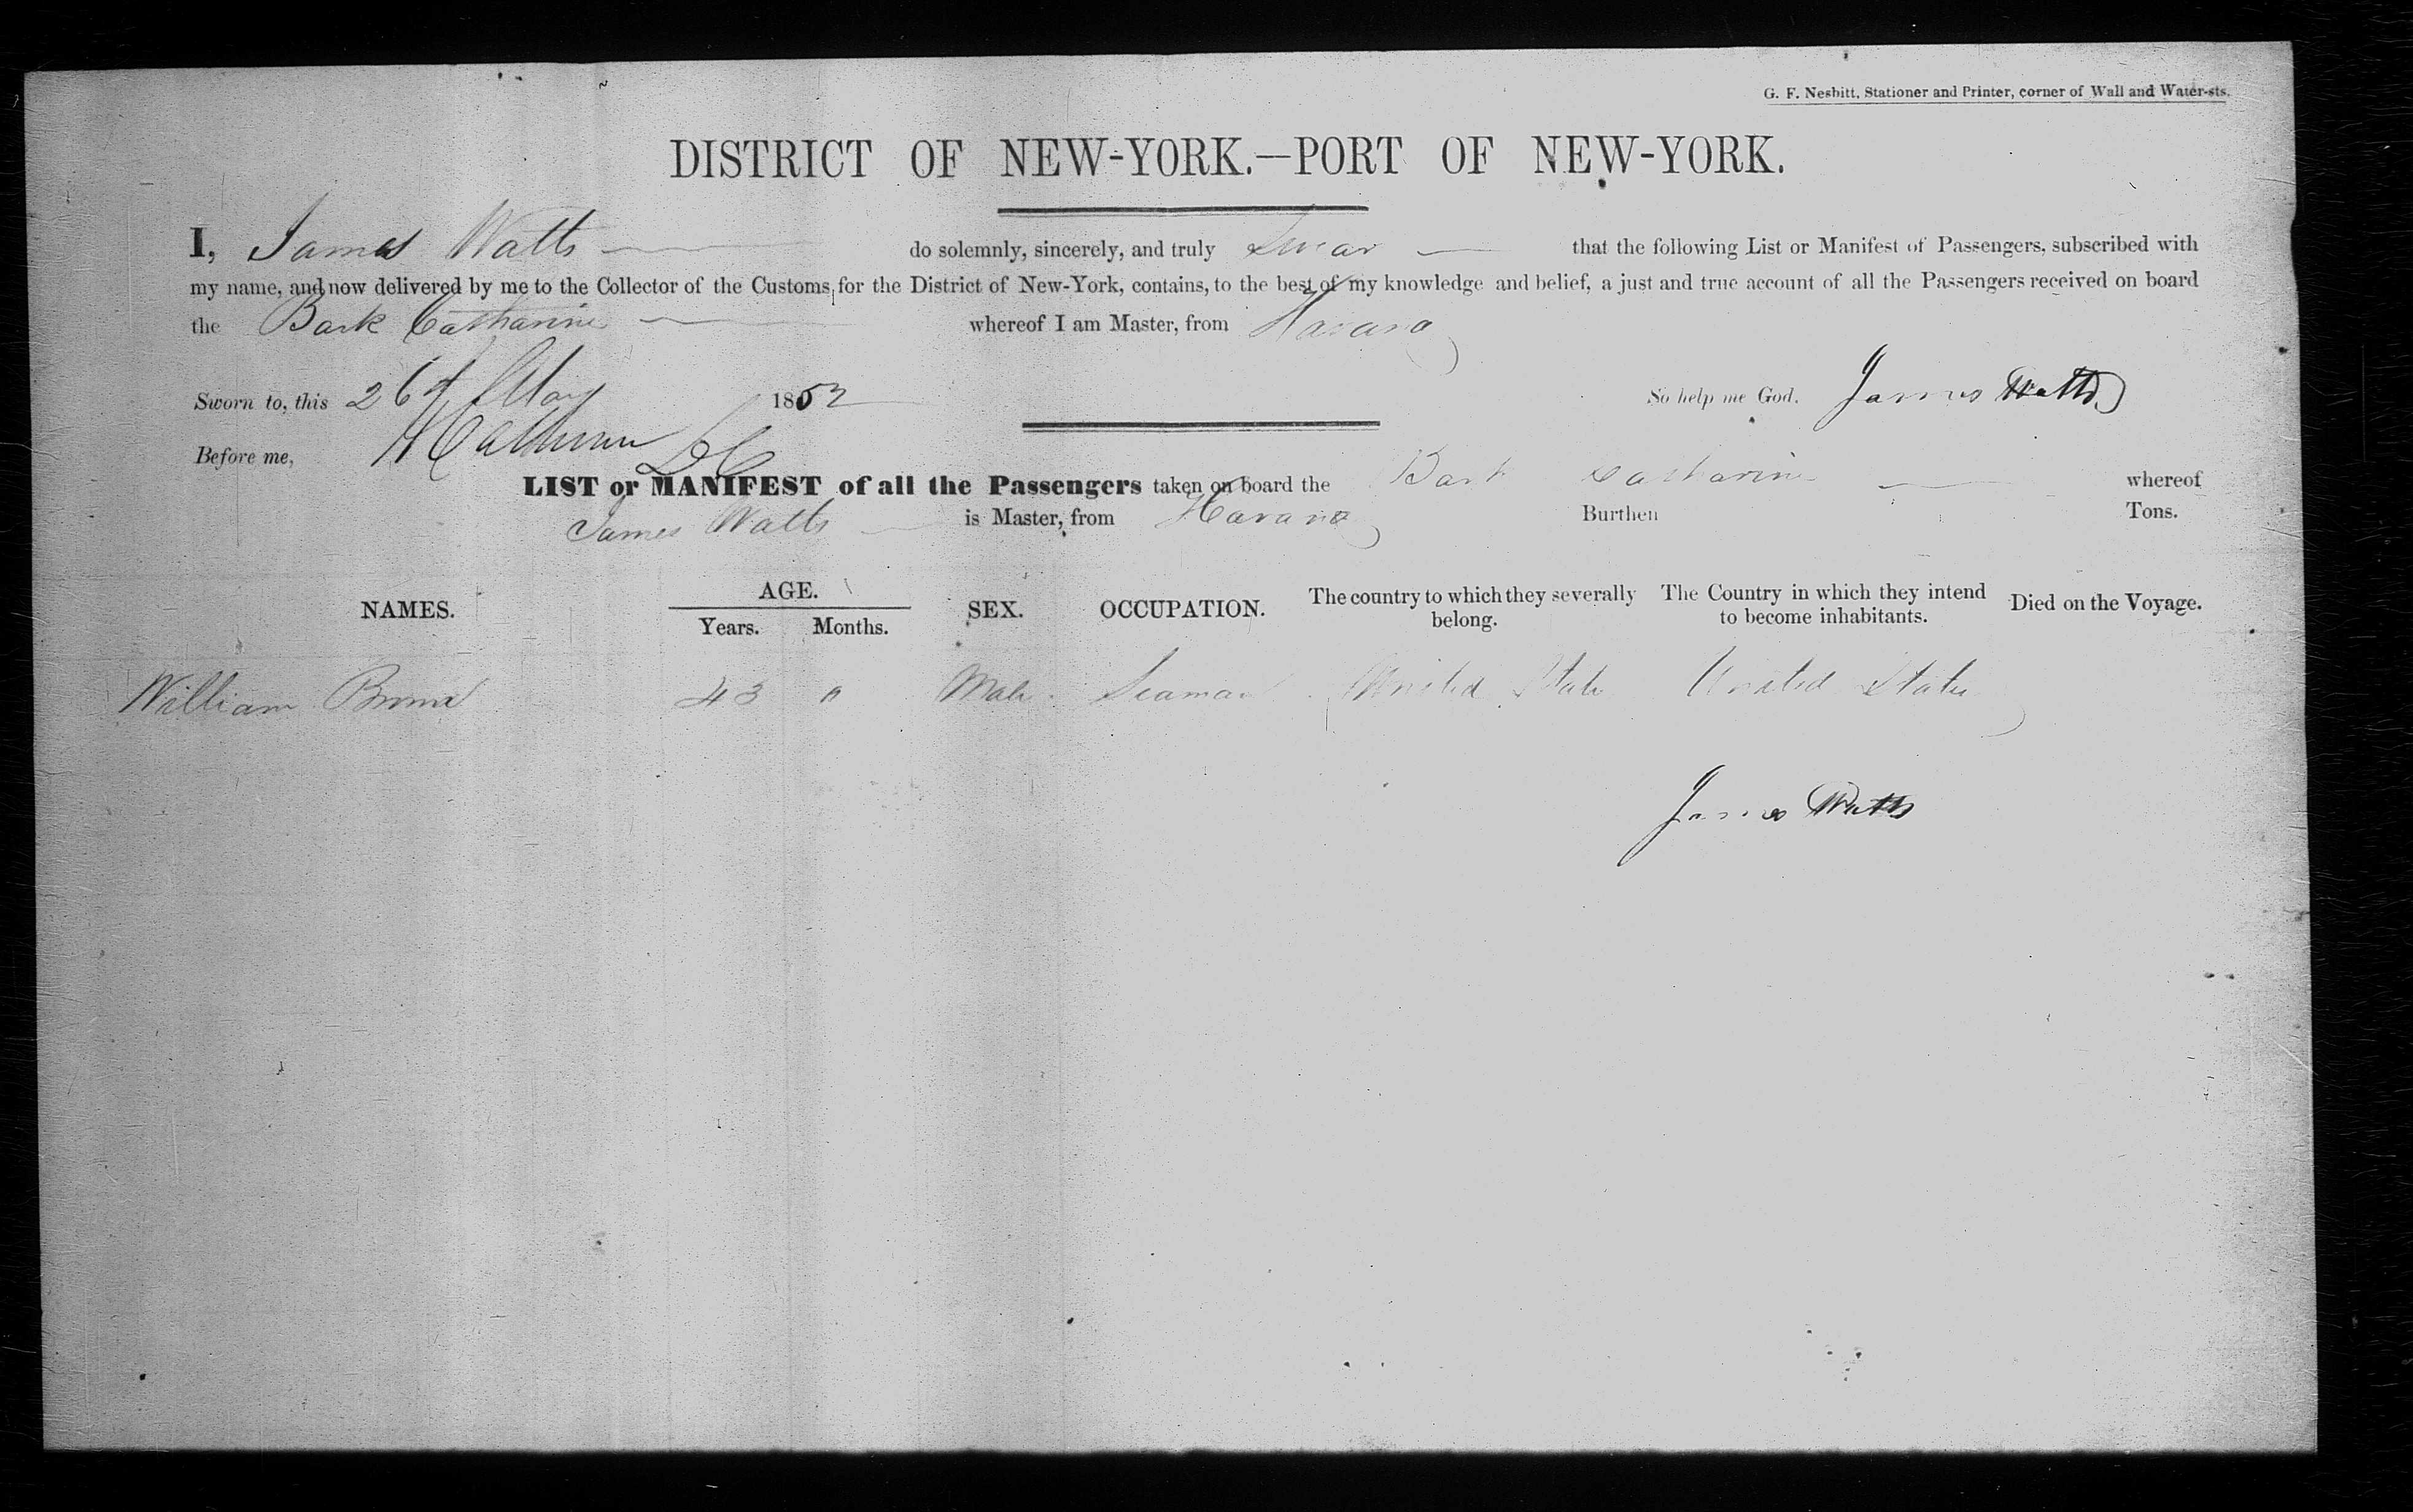 G. F. Nesbitt, Stationer and Printer, corner of Wall and Water-sts.
DISTRICT OF NEW-YORK.—PORT OF NEW-YORK.
I, James Watts do solemnly, sincerely, and truly Swear that the following List or Manifest of Passengers, subscribed with
my name, and now delivered by me to the Collector of the Customs for the District of New-York, contains, to the best of my knowledge and belief, a just and true account of all the Passengers received on board
the Bark Catharine whereof I am Master, from Havana
Sworn to, this 26th May 1852 So help me God. James Watts
Before me,
LIST or MANIFEST of all the Passengers taken on board the Bark Catharine whereof
James Watts is Master, from Havana Burthen Tons.
NAMES. AGE. Years. Months. SEX. OCCUPATION. The country to which they severally belong. The Country in which they intend to become inhabitants. Died on the Voyage.
William 43 " Male Seaman United State United States
James Watts